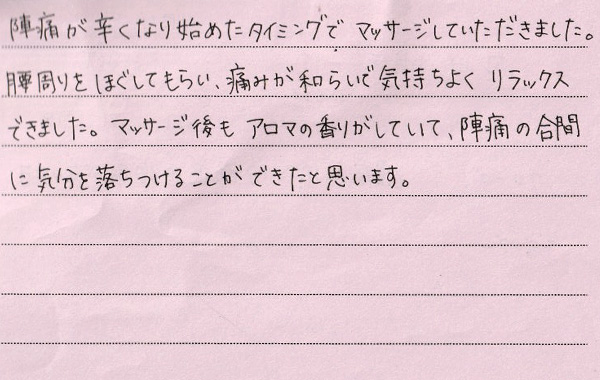 陣痛が辛くなり始めたタイミングでマッサージしていただきました。
腰周りをほぐしてもらい、痛みが和らいで気持ちよくリラックス
できました。マッサージ後もアロマの香りがしていて、陣痛の合間
に気分を落ちつけることができたと思います。